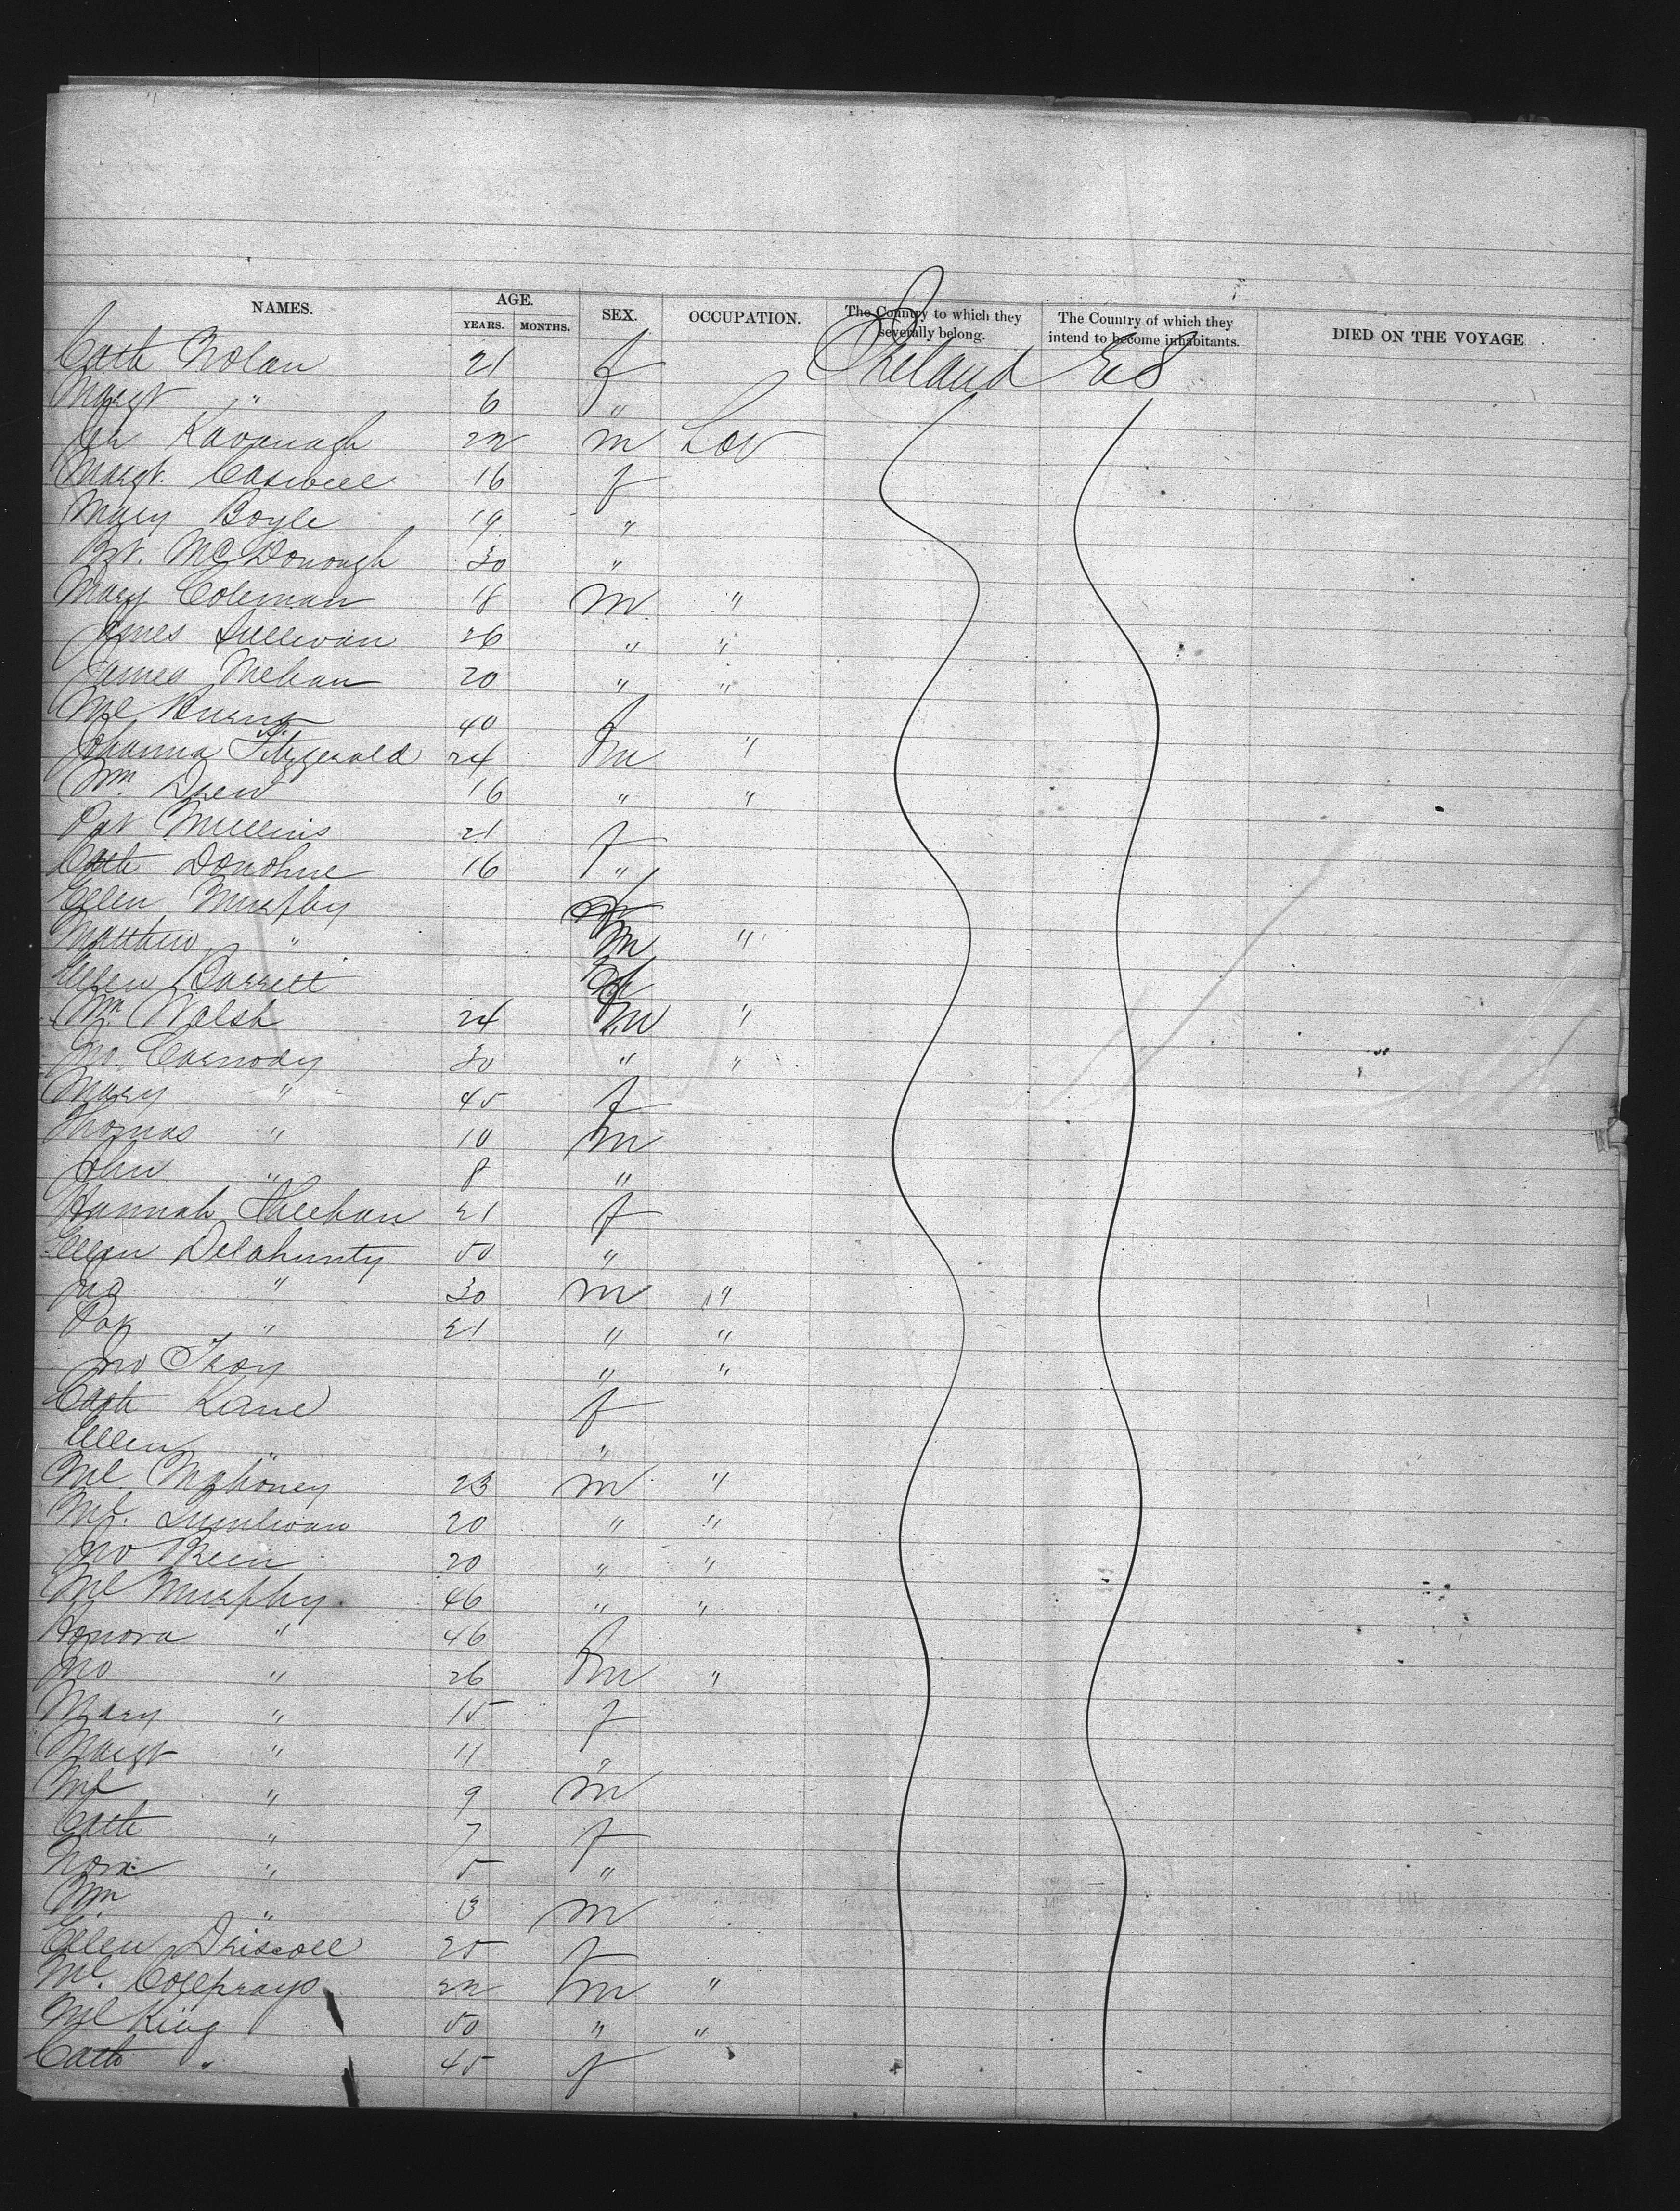 NAMES. AGE. SEX. OCCUPATION. The Country to which they severally belong. The Country of which they intend to become inhabitants. DIED ON THE VOYAGE
YEARS. MONTHS.
Cath Nolan 21 f Ireland U S
Margt " 6 "
Kavanagh 22 m Lab
Margt. Caswell 16 f
Mary Boyle 19 "
Bgt. McDonough 30 "
Mary Coleman 18 m "
James Sullivan 26 " "
James Mehan 20 " "
Ml Burns 40 f
Johanna Fitzgerald 24 m "
Wm. Drew 16 " "
Pat Mullins 21 f
Cath Donohue 16 "
Ellen Murphy f
Matthew " m "
Ellen Barrett f
Wm. Walsh 24 m "
Jno. Carmody 30 " "
Mary " 45 f
Thomas " 10 m
John " 8 "
Hannah Sheehan 21 f
Ellen Delahunty 50 "
Jno " 30 m "
Pat " 21 " "
Jno Troy " "
Cath Kane f
Ellen " "
Ml. Mahoney 23 m "
Ml. Sullivan 20 " "
Jno 20 " "
Ml Murphy 46 " "
Honora " 46 f
Jno " 26 m "
Mary " 15 f
Margt " 11 "
Ml " 9 m
Cath " 7 f
Nora " 5 "
Wm " 3 m
Ellen Driscoll 25 f
Ml. 22 m "
Ml King 50 " "
Cath " 45 f